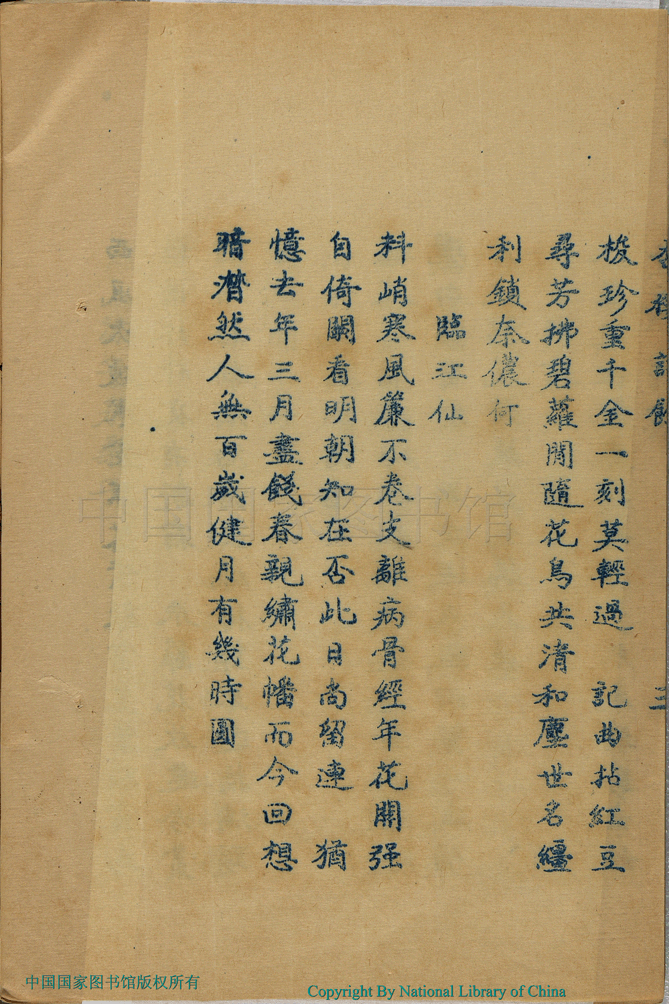 梭珍重千金一刻莫輕過　記曲拈紅豆
尋芳拂碧蘿閒隨花鳥共清和塵世名纏
利鎖奈儂何
臨江仙
料峭寒風簾不卷支離病骨經年花開强
自倚闌看明朝知在否此日尚留連　猶
憶去年三月盡餞春親繡花幡而今回想
暗潸然人無百歲健月有幾時圓
三
中国国家图书馆
中国国家图书馆版权所有
Copyright By National Library of China